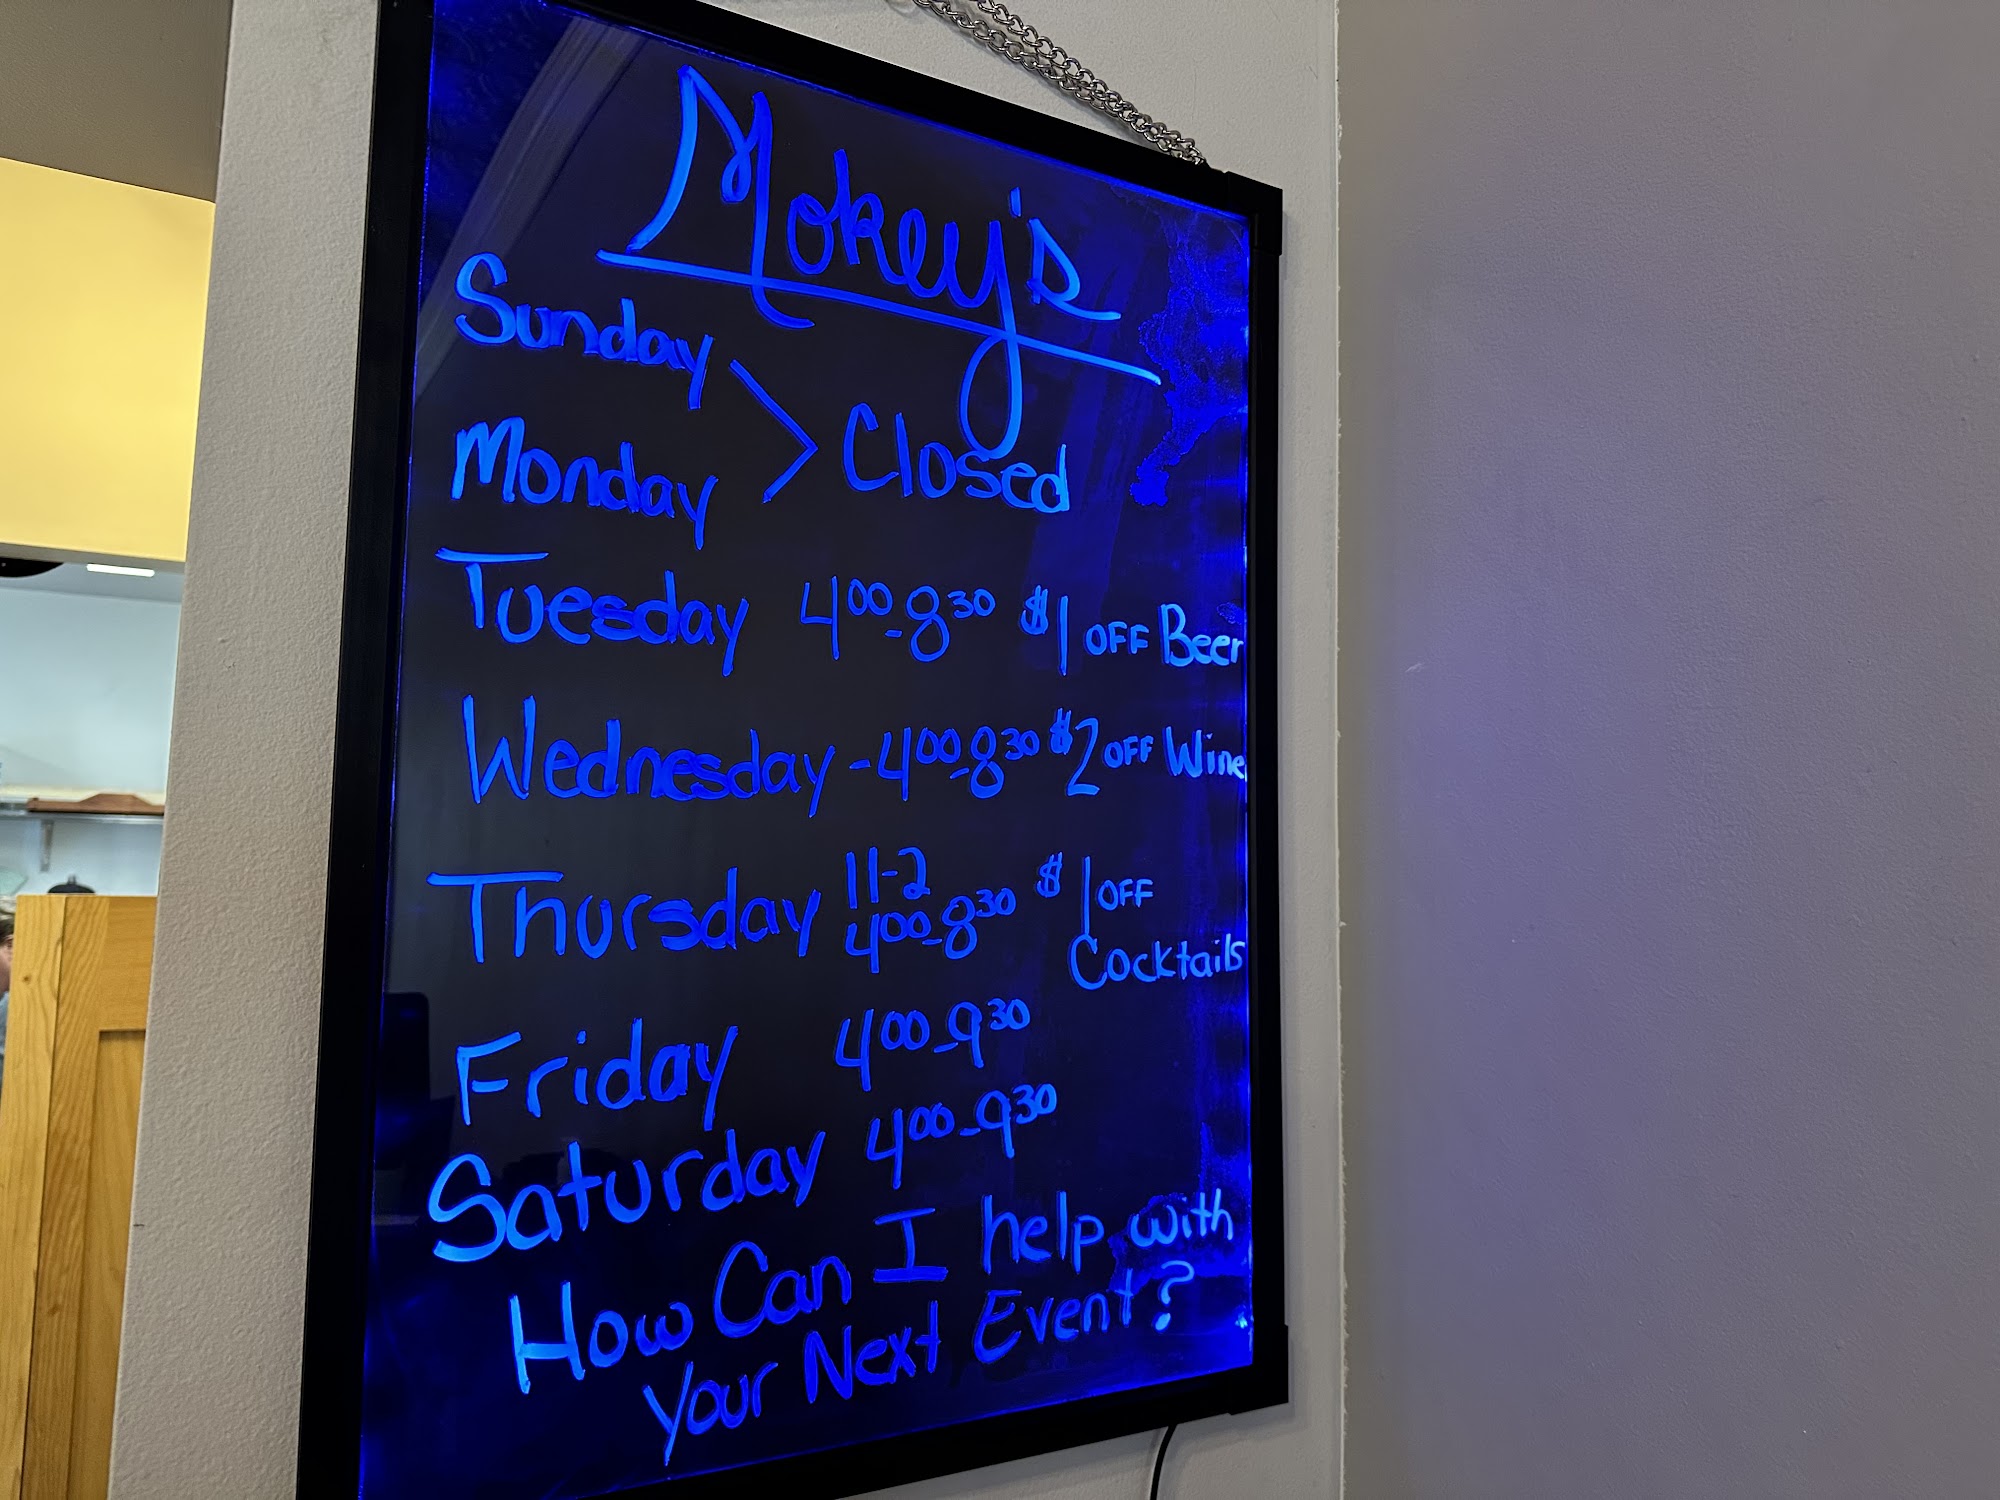 Mokey's
Sunday
Monday > Closed
Tuesday 4⁰⁰-8³⁰ $1 OFF Beer
Wednesday - 4⁰⁰-8³⁰ $2 OFF Wine
Thursday 11-2
4⁰⁰-8³⁰ $1 OFF
Cocktails
Friday 4⁰⁰-9³⁰
Saturday 4⁰⁰-9³⁰
How Can I help with
your Next Event?